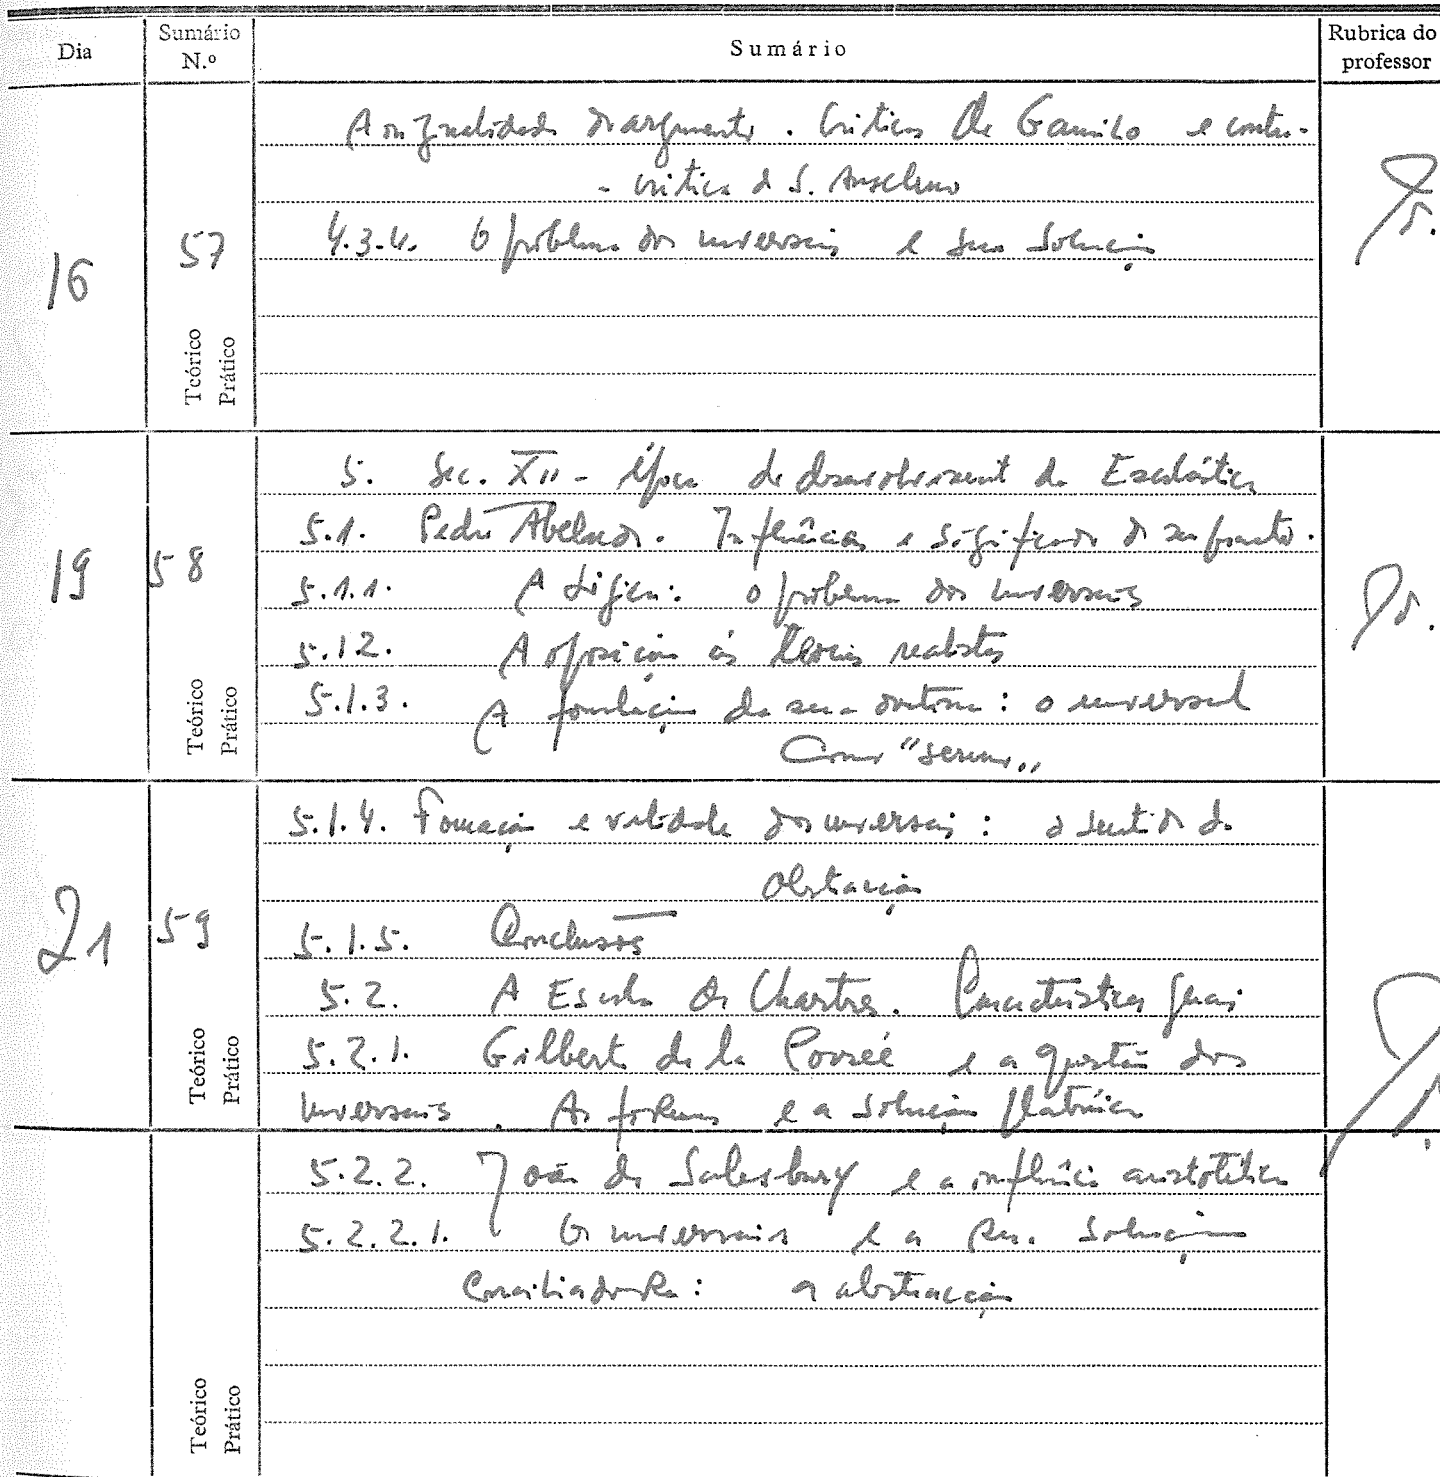 Dia
Sumário N.º
Sumário
Rubrica do professor
A originalidade do argumento. Críticas de Gaunilo e contra-
- crítica de S. Anselmo
4.3.4. O problema dos universais e sua solução
16
57
Teórico
Prático
5. Sec. XII - Época de desenvolvimento da Escolástica
5.1. Pedro Abelardo. Influências e significado do seu
5.1.1. A Lógica: o problema dos universais
5.1.2. A oposição às teorias realistas
5.1.3. A formulação da sua doutrina: o universal
como "sermo"
19
58
Teórico
Prático
5.1.4. Formação e validade dos universais: o sentido da
abstracção
5.1.5. Conclusões
5.2. A Escola de Chartres. Características gerais
5.2.1. Gilbert de la Porrée e a questão dos
universais. As formas e a solução platónica
21
59
Teórico
Prático
5.2.2. João de Salesbury e a influência aristotélica
5.2.2.1. Os universais e a sua solução
conciliadora: a abstracção
Teórico
Prático